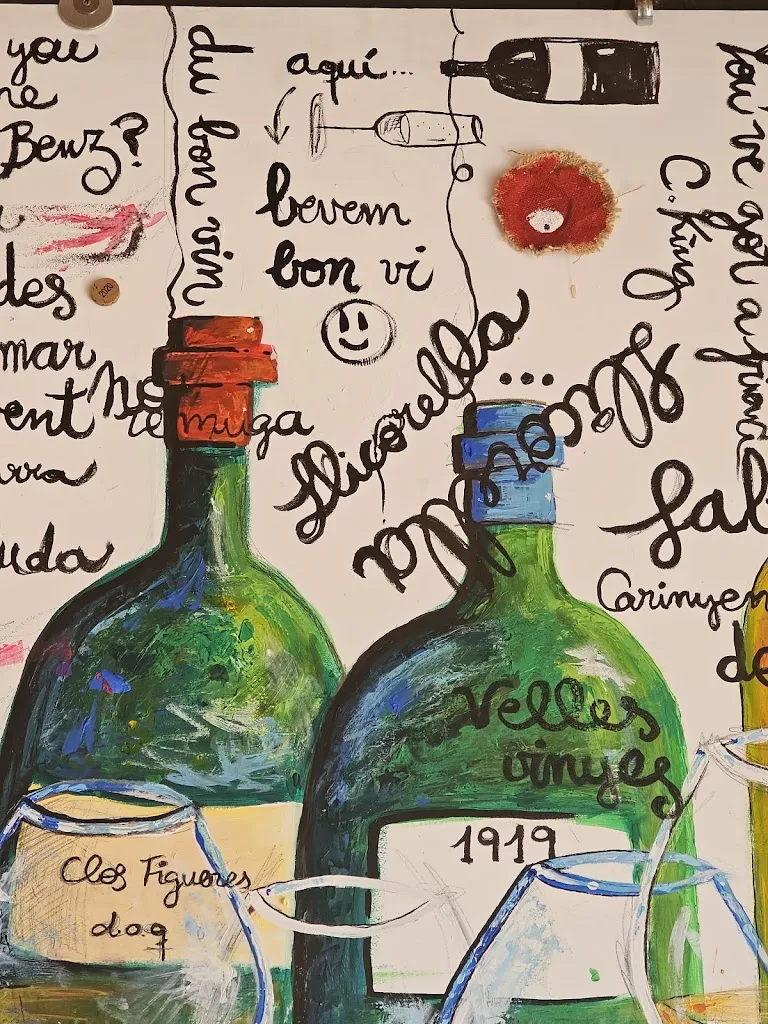 you
ne
Benz?
des
mar
vent
rra
uda
du bon vin
aquí...
bevem
bon vi
2020
no
remuga
llicorella
...
llicorella
You've got a friend
C. King
Sal
Carinyen
de
Velles
vinyes
1919
Clos Figueres
d.o.q